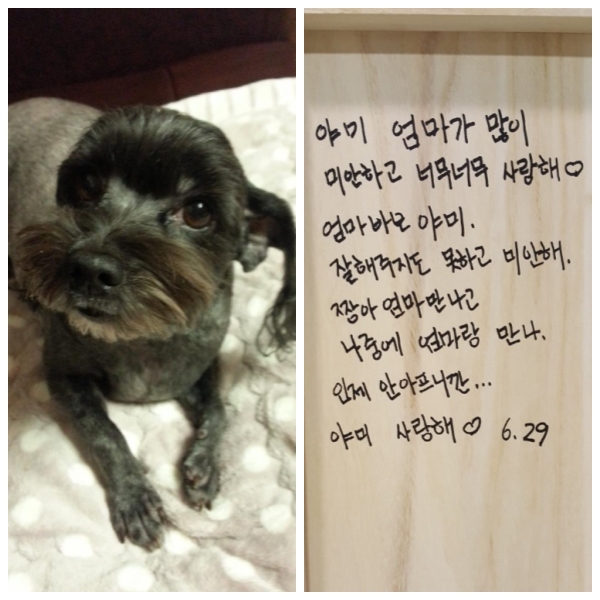 야미 엄마가 많이
미안하고 너무너무 사랑해♡
엄마바보 야미.
잘해주지도 못하고 미안해.
짱아 언마만나고
나중에 엄마랑 만나.
인제 안아프니깐...
야미 사랑해♡ 6.29